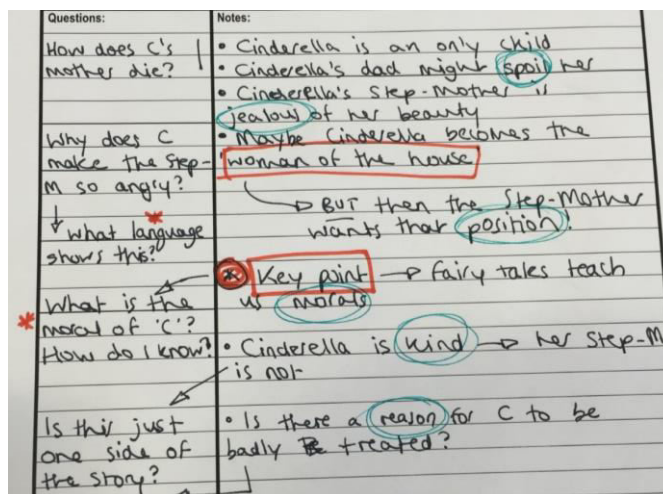 Questions:
How does C's
mother die?
Why does C
make the Step-
M so angry?
What language
shows this?
What is the
moral of 'C'?
How do I know?
Is this just
one side of
the story?
Notes:
• Cinderella is an only child
• Cinderella's dad might spoil her
• Cinderella's Step-Mother is
jealous of her beauty
• Maybe Cinderella becomes the
woman of the house
BUT then the Step-Mother
wants that position!
Key point → Fairy tales teach
us morals
• Cinderella is kind → her Step-M
is not
• Is there a reason for C to be
badly treated?